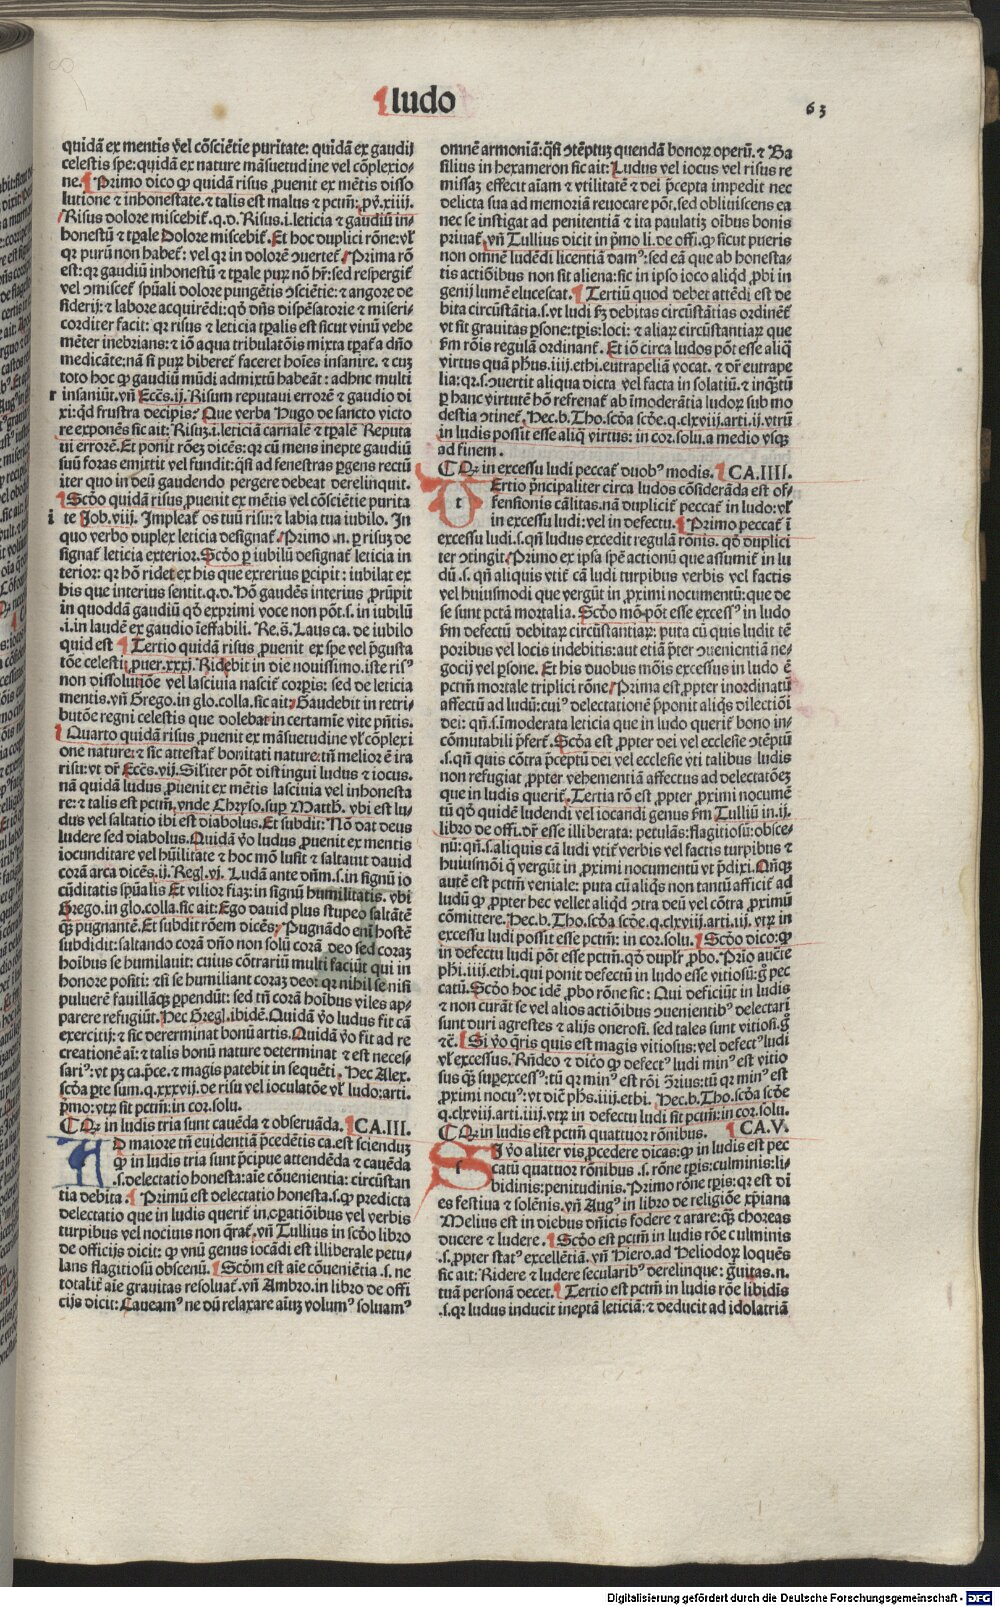 ¶ludo
63
quidã ex mentis vel cõsciẽtie puritate: quidã ex gaudij
celestis spe: quidã ex nature mãsuetudine vel cõplexio-
ne. ¶Primo dico ꝙ quidã risus ꝓuenit ex mẽtis disso
lutione ⁊ inhonestate. ⁊ talis est malus ⁊ pctm̃: ꝓṽ.xiiij.
Risus dolore miscebit̃. q.d. Risus.i.leticia ⁊ gaudiũ in-
honestũ ⁊ tꝑale Dolore miscebit̃. Et hoc duplici rõne: vl̃
qꝛ purũ non habet̃: vel qꝛ in dolorẽ ↄuertet̃. Prima rõ
est: qꝛ gaudiũ inhonestũ ⁊ tꝑale puꝝ nõ hr̃: sed respergit̃
vel ↄmiscet̃ spũali dolore pungẽtis ↄsciẽtie: ⁊ angore de
siderij: ⁊ labore acquirẽdi: qõ dñs dispẽsatorie ⁊ miseri-
corditer facit: qꝛ risus ⁊ leticia tꝑalis est sicut vinũ vehe
mẽter inebrians: ⁊ iõ aqua tribulatõis mixta tꝑat̃ a dño
medicãte: nã si purũ biberet̃ faceret hoĩes insanire. ⁊ cuȝ
toto hoc ꝙ gaudiũ mũdi admixtũ habeãt: adhuc multi
r insaniũt. vñ Eccẽs.ij. Risum reputaui errorẽ ⁊ gaudio di
xi: qd frustra decipis? Que verba Hugo de sancto victo
re exponẽs sic ait: Risuȝ.i.leticiã carnalẽ ⁊ tꝑalẽ Reputa
ui errorẽ. Et ponit rõeȝ dicẽs: qꝛ cũ mens inepte gaudiũ
suũ foras emittit vel fundit: q̃si ad fenestras ꝑgens rectũ
iter quo in deũ gaudendo pergere debeat derelinquit.
¶Scðo quidã risus ꝓuenit ex mẽtis vel cõsciẽtie purita
i te Job.viij. Impleat̃ os tuũ risu: ⁊ labia tua iubilo. In
quo verbo duplex leticia designat̃. Primo.n. ꝑ risuȝ de
signat̃ leticia exterior. Scðo ꝑ iubilũ designat̃ leticia in
terior: qꝛ hõ ridet ex his que exterius ꝑcipit: iubilat ex
his que interius sentit. q.d. Hõ gaudẽs interius ꝓrũpit
in quoddã gaudiũ qõ exprimi voce non põt.s. in iubilũ
.i.in laudẽ ex gaudio ĩeffabili. Re.s̃. Laus ca. de iubilo
quid est ¶Tertio quidã risus ꝓuenit ex spe vel p̃gusta
tõe celesti: ꝓuer.xxxj. Ridebit in die nouissimo. iste ris⁹
non dissolutiõe vel lasciuia nascit̃ corꝑis: sed de leticia
mentis. vñ Grego.in glo.colla.sic ait: Gaudebit in retri-
butõe regni celestis que dolebat in certamĩe vite pñtis.
¶Quarto quidã risus ꝓuenit ex mãsuetudine vl̃ cõplexi
one nature: ⁊ sic attestat̃ bonitati nature: tñ melior ẽ ira
risu: vt dr̃ Eccẽs.vij. Sil̃iter põt distingui ludus ⁊ iocus.
nã quidã ludus ꝓuenit ex mẽtis lasciuia vel inhonesta
te: ⁊ talis est pctm̃. vnde Chryso.suꝑ Matth̃. vbi est lu-
dus vel saltatio ibi est diabolus. Et subdit: Nõ dat deus
ludere sed diabolus. Quidã ṽo ludus ꝓuenit ex mentis
iocunditate vel hũilitate ⁊ hoc mõ lusit ⁊ saltauit dauid
corã arca dicẽs.ij. Regl̃.vj. Ludã ante dñm.s.in signũ io
cũditatis spũalis Et vilior fiaȝ: in signũ humilitatis. vbi
Grego.in glo.colla.sic ait: Ego dauid plus stupeo saltãtẽ
q̃ȝ pugnantẽ. Et subdit rõem dicẽs: Pugnãdo eni hostẽ
subdidit: saltando corã dño non solũ corã deo sed coraȝ
hoĩbus se humilauit: cuius cõtrariũ multi faciũt qui in
honore positi: ⁊ si se humiliant coraȝ deo: qꝛ nihil se nisi
puluerẽ fauillãqȝ ꝑpendũt: sed tñ corã hoĩbus viles ap-
parere refugiũt. Hec Gregl̃.ibidẽ. Quidã ṽo ludus fit cã
exercitij: ⁊ sic determinat bonũ artis. Quidã ṽo fit ad re
creationẽ aĩ: ⁊ talis bonũ nature determinat ⁊ est neces-
sari⁹: vt pȝ ca.p̃ce. ⁊ magis patebit in sequẽti. Hec Alex.
scða ꝑte sum.q.xxxvij.de risu vel ioculatõe vl̃ ludo: arti.
p̃mo: vtꝝ sit pctm̃: in cor.solu.
¶Qꝛ in ludis tria sunt cauẽda ⁊ obseruãda. ¶CA.III.
AD maiorẽ tñ euidentiã p̃cedẽtis ca.est sciendũȝ
ꝙ in ludis tria sunt p̃cipue attendẽda ⁊ cauẽda
.s.delectatio honesta: aĩe cõuenientia: circũstan
tia debita. ¶Primũ est delectatio honesta.s.ꝙ predicta
delectatio que in ludis querit̃ in oꝑatiõibus vel verbis
turpibus vel nociuis non q̃rat̃. vñ Tullius in scðo libro
de officijs dicit: ꝙ vnũ genus iocãdi est illiberale petu-
lans flagitiosũ obscenũ. ¶Scðm est aĩe cõueniẽtia.s. ne
totalit̃ aĩe grauitas resoluat̃. vñ Ambro.in libro de offi
cijs dicit: Caueam⁹ ne dũ relaxare aĩũȝ volum⁹ soluam⁹
omnẽ armoniã: q̃si ↄtẽptuȝ quendã bonoꝝ operũ. ⁊ Ba
silius in hexameron sic ait: Ludus vel iocus vel risus re
missaȝ effecit aĩam ⁊ vtilitatẽ ⁊ dei p̃cepta impedit nec
delicta sua ad memoriã reuocare põt. sed obliuiscens ea
nec se instigat ad penitentiã ⁊ ita paulatiȝ oĩbus bonis
priuat̃. vñ Tullius dicit in p̃mo li.de offi. ꝙ sicut pueris
non omnẽ ludẽdi licentiã dam⁹: sed eã que ab honesta-
tis actiõibus non sit aliena: sic in ipso ioco aliqd ꝓbi in
genij lumẽ elucescat. ¶Tertiũ quod debet attẽdi est de
bita circũstãtia.s.vt ludi ẜm debitas circũstãtias ordinẽt̃
vt sit grauitas ꝑsone: tꝑis: loci: ⁊ aliaꝝ circũstantiaꝝ que
ẜm rõis regulã ordinant̃. Et iõ circa ludos põt esse aliq̃
virtus quã phũs.iiij.ethi.eutrapeliã vocat. ⁊ dr̃ eutrape
lia: qꝛ.s.ↄuertit aliqua dicta vel facta in solatiũ. ⁊ inq̃tũ
ꝑ hanc virtutẽ hõ refrenat̃ ab ĩmoderãtia ludoꝝ sub mo
destia ↄtinet̃. Hec.b.Tho.scða scðe.q.clxviij.arti.ij.vtrũ
in ludis possit esse aliq̃ virtus: in cor.solu.a medio vsqȝ
ad finem.
¶Qꝛ in excessu ludi peccat̃ duob⁹ modis. ¶CA.IIII.
TErtio p̃ncipaliter circa ludos cõsiderãda est of-
t fensionis cãlitas. nã duplicit̃ peccat̃ in ludo: vl̃
in excessu ludi: vel in defectu. ¶Primo peccat̃ ĩ
excessu ludi.s.qñ ludus excedit regulã rõnis. qõ duplici
ter ↄtingit. Primo ex ipsa spẽ actionũ que assumit̃ in lu
dũ.s. qñ aliquis vtit̃ cã ludi turpibus verbis vel factis
vel huiusmodi que vergũt in ꝓximi nocumentũ: que de
se sunt pctã mortalia. Scðo mõ põt esse excess⁹ in ludo
ẜm defectũ debitaꝝ circũstantiaꝝ: puta cũ quis ludit tẽ
poribus vel locis indebitis: aut etiã p̃ter ↄuenientiã ne-
gocij vel ꝑsone. Et his duobus mõis excessus in ludo ẽ
pctm̃ mortale triplici rõne. Prima est ꝓpter inordinatũ
affectũ ad ludũ: cui⁹ delectationẽ p̃ponit aliqs dilectiõi
dei: qñ.s.ĩmoderata leticia que in ludo querit̃ bono in-
cõmutabili p̃fert̃. Scða est ꝓpter dei vel ecclesie ↄtẽptũ
.s.qñ quis cõtra p̃ceptũ dei vel ecclesie vti talibus ludis
non refugiat ꝓpter vehementiã affectus ad delectatõeȝ
que in ludis querit̃. Tertia rõ est ꝓpter ꝓximi nocumẽ
tũ qõ quidẽ ludendi vel iocandi genus ẜm Tulliũ in.ij.
libro de offi.dr̃ esse illiberata: petulãs: flagitiosũ: obsce-
nũ: qñ.s.aliquis cã ludi vtit̃ verbis vel factis turpibus ⁊
huiusmõi q̃ vergũt in ꝓximi nocumentũ vt p̃dixi. Qñqȝ
autẽ est pctm̃ veniale: puta cũ aliqs non tantũ afficit̃ ad
ludũ ꝙ ꝓpter hec vellet aliqd ↄtra deũ vel cõtra ꝓximũ
cõmittere. Hec.b.Tho.scða scðe.q.clxviij.arti.iij. vtꝝ in
excessu ludi possit esse pctm̃: in cor.solu. ¶Scðo dico: ꝙ
in defectu ludi põt esse pctm̃. qõ duplr̃ ꝓbo. Prĩo aucte
phi.iiij.ethi.qui ponit defectũ in ludo esse vitiosũ: g̃ pec
catũ. Scðo hoc idẽ ꝓbo rõne sic: Qui deficiũt in ludis
⁊ non curãt se vel alios actiõibus ↄuenientib⁹ delectari
sunt duri agrestes ⁊ alijs onerosi. sed tales sunt vitiosi. g̃
⁊c̃. ¶Si ṽo q̃ris quis est magis vitiosus: vel defect⁹ ludi
vl̃ excessus. Rñdeo ⁊ dico ꝙ defect⁹ ludi min⁹ est vitio
sus q̃ȝ suꝑexcess⁹: tũ qꝛ min⁹ est rõi ↄ̃rius: tũ qꝛ min⁹ est
ꝓximi nocu⁹: vt dic̃ phs.iiij.ethi. Hec.b.Tho.scða scðe
q.clxviij.arti.iiij.vtꝝ in defectu ludi sit pctm̃: in cor.solu.
¶Qꝛ in ludis est pctm̃ quattuor rõnibus. ¶CA.V.
SI ṽo aliter vis ꝓcedere dicas: ꝙ in ludis est pec
s catũ quattuor rõnibus.s. rõne tꝑis: culminis: li-
bidinis: penitudinis. Primo rõne tꝑis: qꝛ est di
es festiua ⁊ solẽnis. vñ Aug⁹ in libro de religiõe xp̃iana
Melius est in diebus dñicis fodere ⁊ arare: q̃ȝ choreas
ducere ⁊ ludere. ¶Scðo est pctm̃ in ludis rõe culminis
.s.ꝓpter stat⁹ excellẽtiã. vñ Hiero.ad Heliodoꝝ loquẽs
sic ait: Ridere ⁊ ludere seculariũ derelinque: g̃uitas.n.
tuã personã decet. ¶Tertio est pctm̃ in ludis rõe libidis
.s.qꝛ ludus inducit ineptã leticiã: ⁊ deducit ad idolatriã
Digitalisierung gefördert durch die Deutsche Forschungsgemeinschaft - DFG